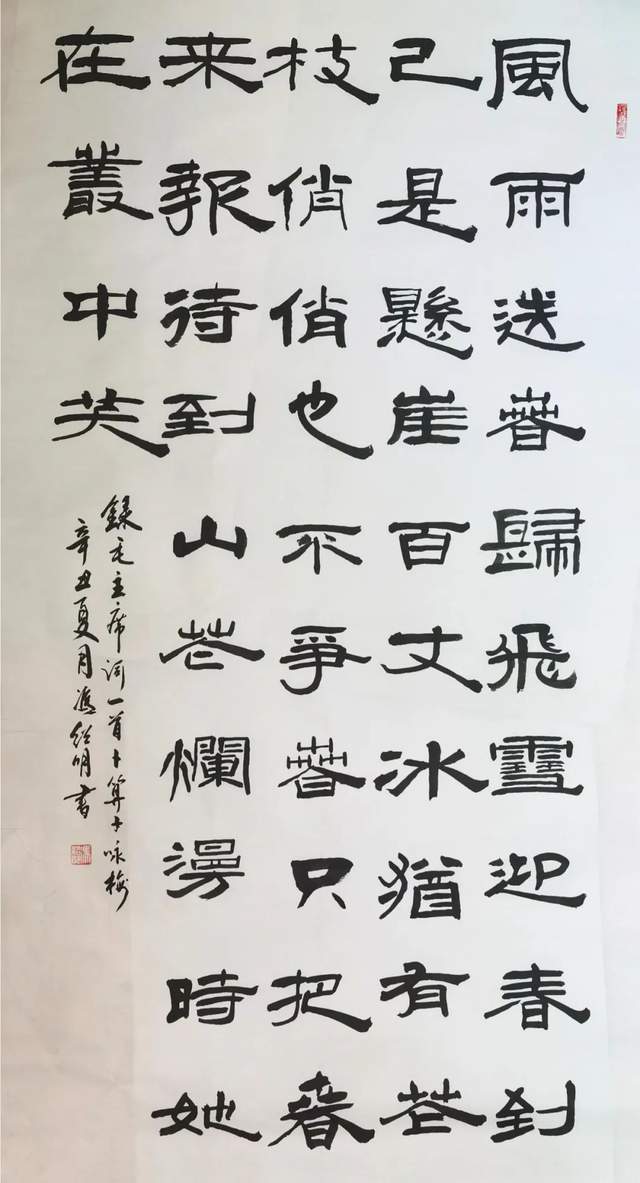 風雨送春歸飛雪迎春到
已是懸崖百丈冰猶有花
枝俏俏也不爭春只把春
来報待到山花爛漫時她
在叢中笑
録毛主席词一首卜算子咏梅
辛丑夏月馮紹明書